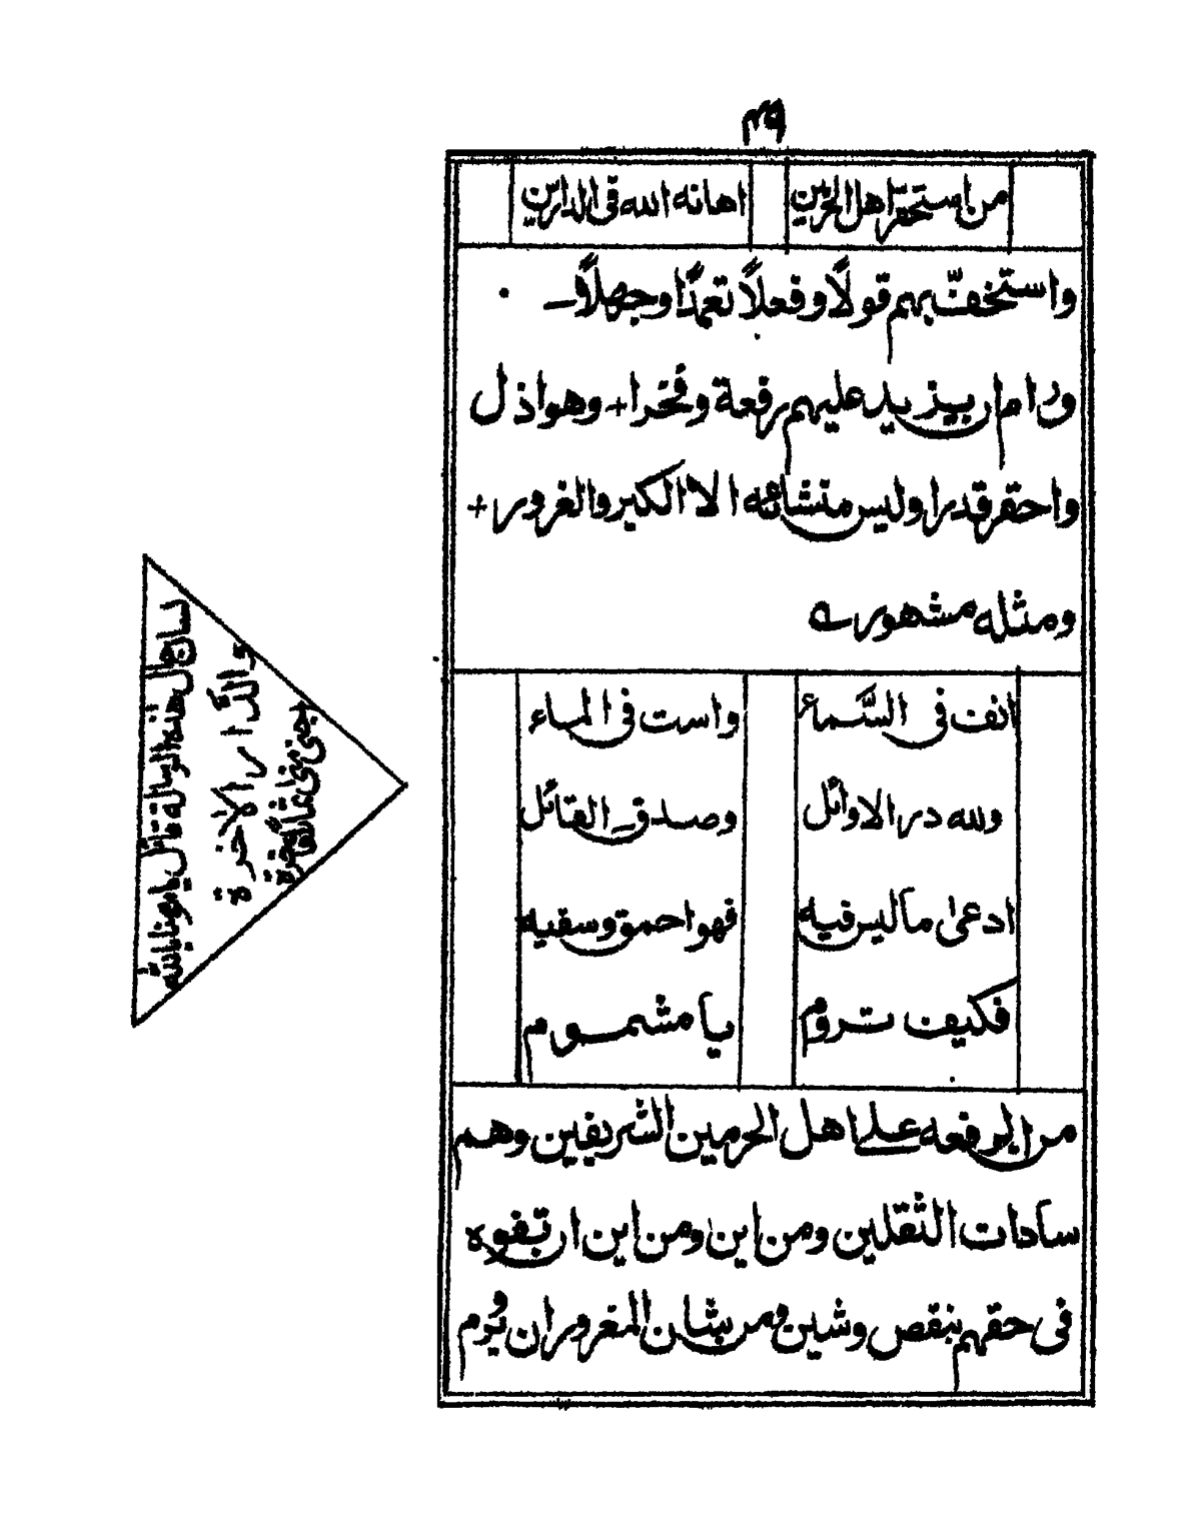 ٤٩
من استحقر اهل الحرمين اهانه الله فى الدارين
واستخفّ بهم قولًا وفعلًا تعمدًا وجهلًا
ورام ان يزيد عليهم رفعة وفخرا + وهو اذل
واحقر قدرا وليس منشائه الا الكبر والغرور +
ومثله مشهور
انف فى السَّماء واست فى الماء
ولله در الاوائل وصدق القائل
ادعى ما ليس فيه فهو احمق وسفيه
فكيف تروم يا مشموم
من الرفعه على اهل الحرمين الشريفين وهم
سادات الثقلين ومن اين ومن اين ان تفوه
فى حقهم بنقص وشين ومن شان المغرور ان يروم
لسان حال هذه الرسالة قائل
والدَّار الاخرة